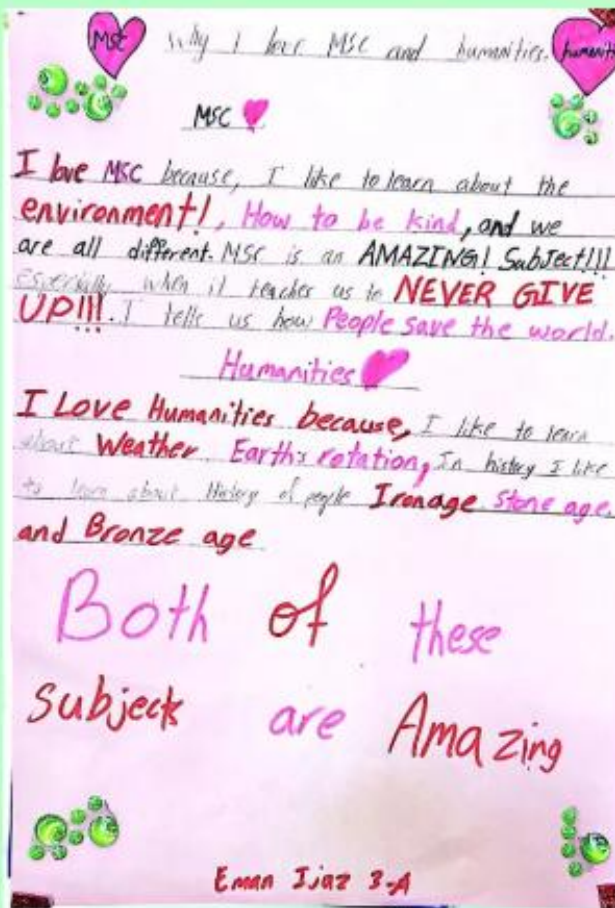 MSC Why I love MSC and humanities. humanities
MSC
I love MSC because, I like to learn about the
environment!, How to be kind, and we
are all different. MSC is an AMAZING! Subject!!!
especially when it teaches us to NEVER GIVE
UP!!!. I tells us how People save the world.
Humanities
I Love Humanities because, I like to learn
about Weather Earth's rotation, In history I like
to learn about History of people Ironage Stone age.
and Bronze age
Both of these
Subjects are Amazing
Eman Ijaz 3-A